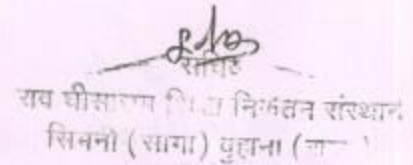 सचिव
राव घीसाराम शिक्षा निकेतन संस्थान
सिमनी (सागा) वुहाना (